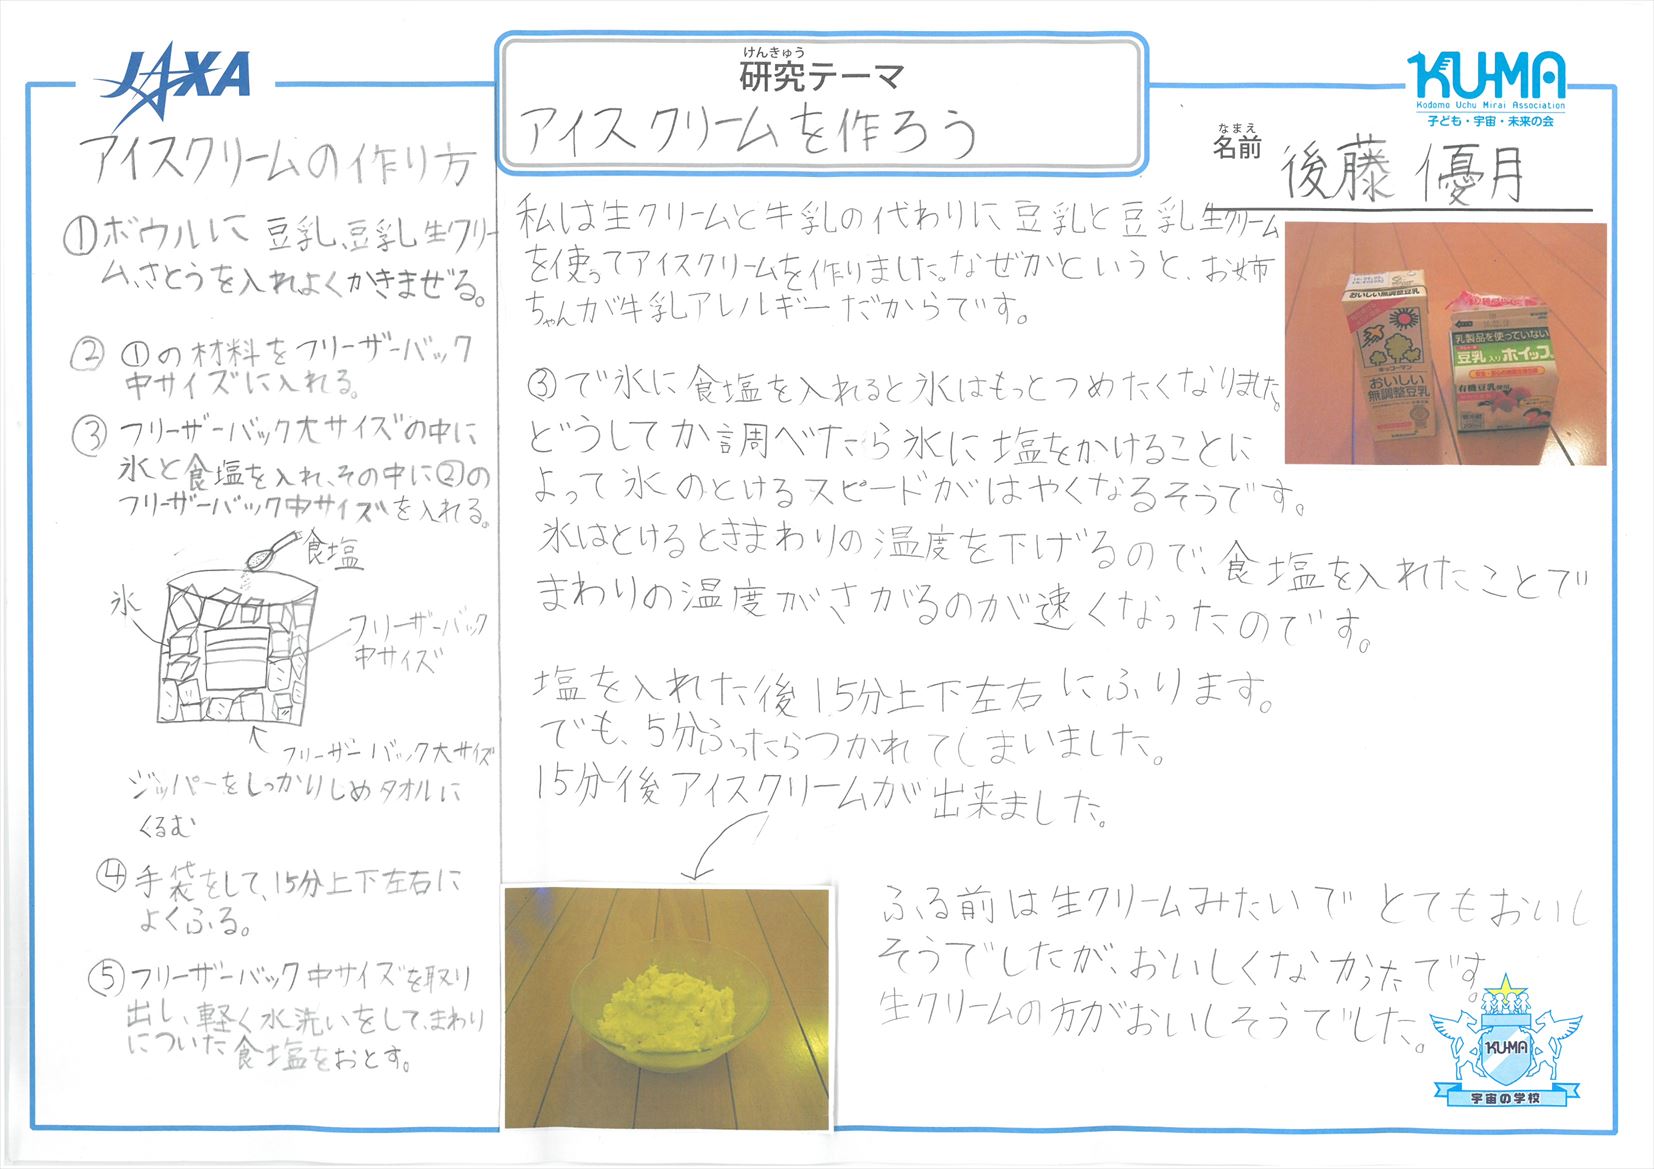 JAXA
けんきゅう
研究テーマ
アイスクリームを作ろう
KU-MA
Kodomo Uchu Mirai Association
子ども・宇宙・未来の会
なまえ
名前
後藤 優月
アイスクリームの作り方
①ボウルに豆乳、豆乳生クリー
ム、さとうを入れよくかきまぜる。
②①の材料をフリーザーバック
中サイズに入れる。
③フリーザーバック大サイズの中に
氷と食塩を入れ、その中に②の
フリーザーバック中サイズを入れる。
食塩
氷
フリーザーバック
中サイズ
フリーザーバック大サイズ
ジッパーをしっかりしめタオルに
くるむ
④手袋をして、15分上下左右に
よくふる。
⑤フリーザーバック中サイズを取り
出し、軽く水洗いをして、まわり
についた食塩をおとす。
私は生クリームと牛乳の代わりに豆乳と豆乳生クリーム
を使ってアイスクリームを作りました。なぜかというと、お姉
ちゃんが牛乳アレルギーだからです。
③で氷に食塩を入れると氷はもっとつめたくなりました。
どうしてか調べたら氷に塩をかけることに
よって氷のとけるスピードがはやくなるそうです。
氷はとけるときまわりの温度を下げるので、食塩を入れたことで
まわりの温度がさがるのが速くなったのです。
塩を入れた後15分上下左右にふります。
でも、5分ふったらつかれてしまいました。
15分後アイスクリームが出来ました。
ふる前は生クリームみたいでとてもおいし
そうでしたが、おいしくなかったです。
生クリームの方がおいしそうでした。
おいしい無調整豆乳
キッコーマン
おいしい
無調整豆乳
乳製品を使っていない
豆乳入りホイップ
有機豆乳使用
KU-MA
宇宙の学校